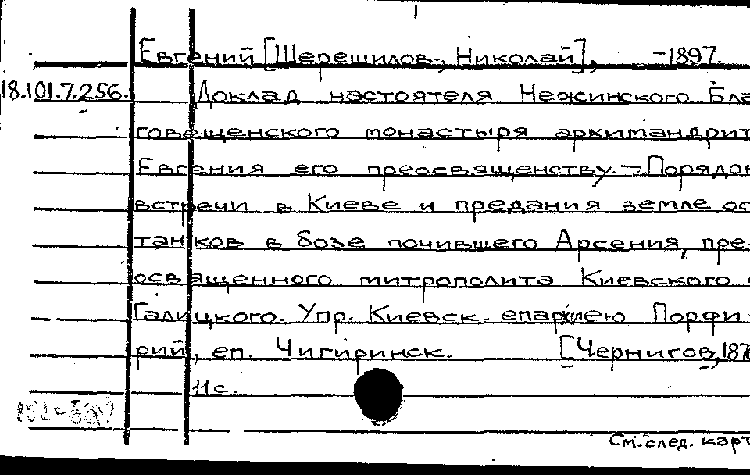 Евгений [Шерешилов, Николай], -1897.
18.101.7.256. Доклад настоятеля Нежинского Бла
говещенского монастыря архимандрит
Евгения его преосвященству. - Порядок
встречи в Киеве и предания земле ос
танков в бозе почившего Арсения, пре-
освященного митрополита Киевского и
Галицкого. Упр. Киевск. епархиею Порфи
рий, еп. Чигиринск. [Чернигов, 187
11с.
См. след. карт